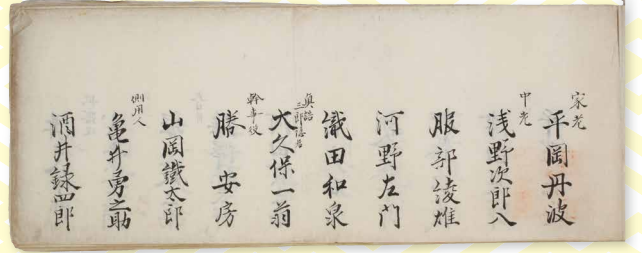 家老
平岡丹波
中老
浅野次郎八
服部綾雄
河野左門
織田和泉
三郎隠居
大久保一翁
幹事役
勝安房
山岡鐵太郎
側用人
亀井勇之助
酒井録四郎